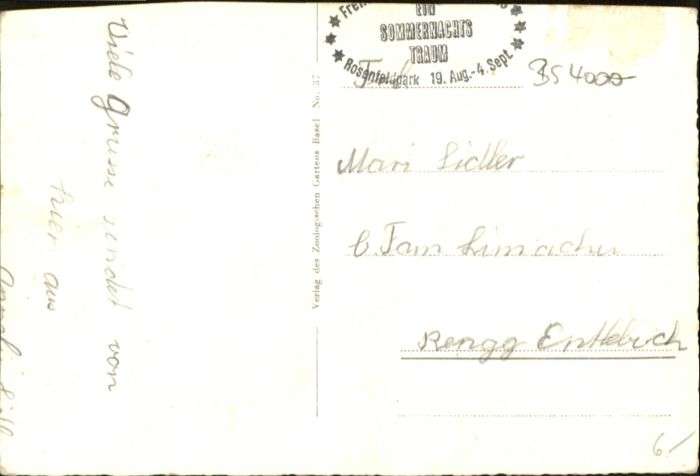 Viele Grüsse sendet von
hier aus
Verlag des Zoologischen Gartens Basel No. 37
EIN
SOMMERNACHTS
TRAUM
Rosenfeldpark 19. Aug.-4. Sept.
BS 4000
Mari Sidler
b. Fam Limacher
Rengg Entlebuch
6/